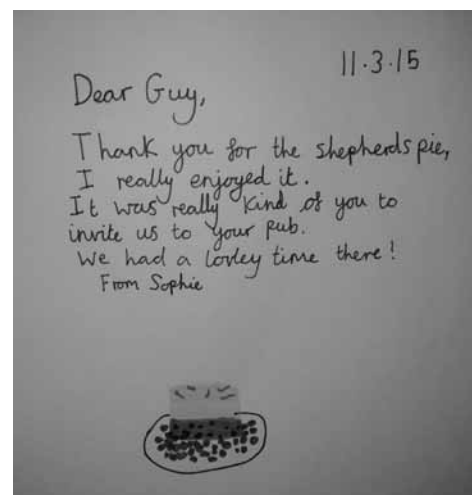 11.3.15
Dear Guy,
Thank you for the shepherds pie,
I really enjoyed it.
It was really kind of you to
invite us to your pub.
We had a lovley time there!
From Sophie